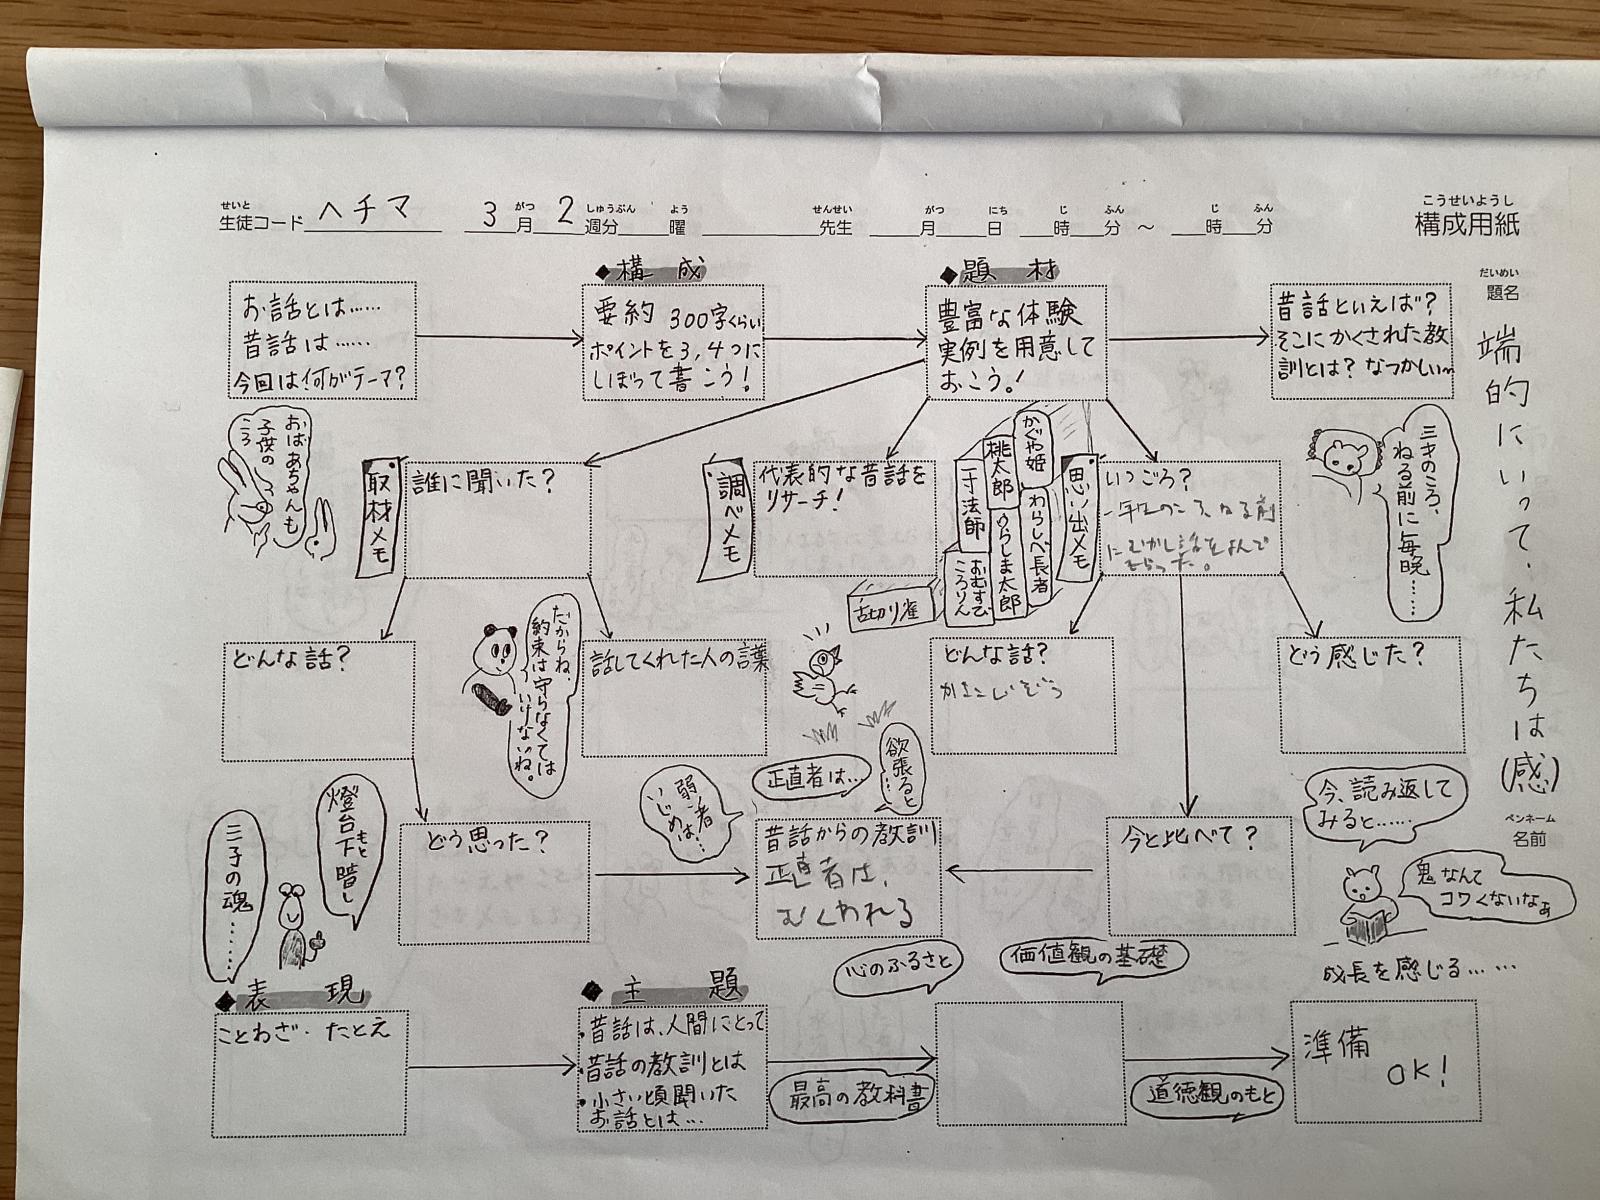 せいと がつ しゅうぶん よう せんせい がつ にち じ ふん じ ふん こうせいようし
生徒コード ヘチマ 3月2週分 曜 先生 月 日 時 分 ～ 時 分 構成用紙
だいめい
題名
端的にいって、私たちは(感)
ペンネーム
名前
お話とは……
昔話は……
今回は何がテーマ?
◆構成
要約 300字くらい
ポイントを3,4つに
しぼって書こう!
◆題材
豊富な体験
実例を用意して
おこう。!
昔話といえば?
そこにかくされた教
訓とは? なつかしい〜
おばあちゃんも
子供の
ころ
取材メモ
誰に聞いた?
調べメモ
代表的な昔話を
リサーチ!
かぐや姫
桃太郎
一寸法師
わらしべ長者
うらしま太郎
おむすび
ころりん
舌切り雀
思い出メモ
いつごろ?
一年生のころ、ねる前
にむかし話をよんで
もらった。
三才のころ、
ねる前に毎晩……
どんな話?
だからね、
約束は守らなくては
いけないね。
話してくれた人の言葉
どんな話?
かさこじぞう
どう感じた?
三子の魂……
燈台下暗し
もと
どう思った?
弱い者
いじめは…
正直者は…
欲張ると
…
昔話からの教訓
正直者は、
むくわれる
今と比べて?
今、読み返して
みると……
鬼なんて
コワくないなぁ
成長を感じる……
心のふるさと
価値観の基礎
◆表現
ことわざ・たとえ
◆主題
・昔話は、人間にとって
・昔話の教訓とは
・小さい頃聞いた
お話とは…
最高の教科書
道徳観のもと
準備
OK!